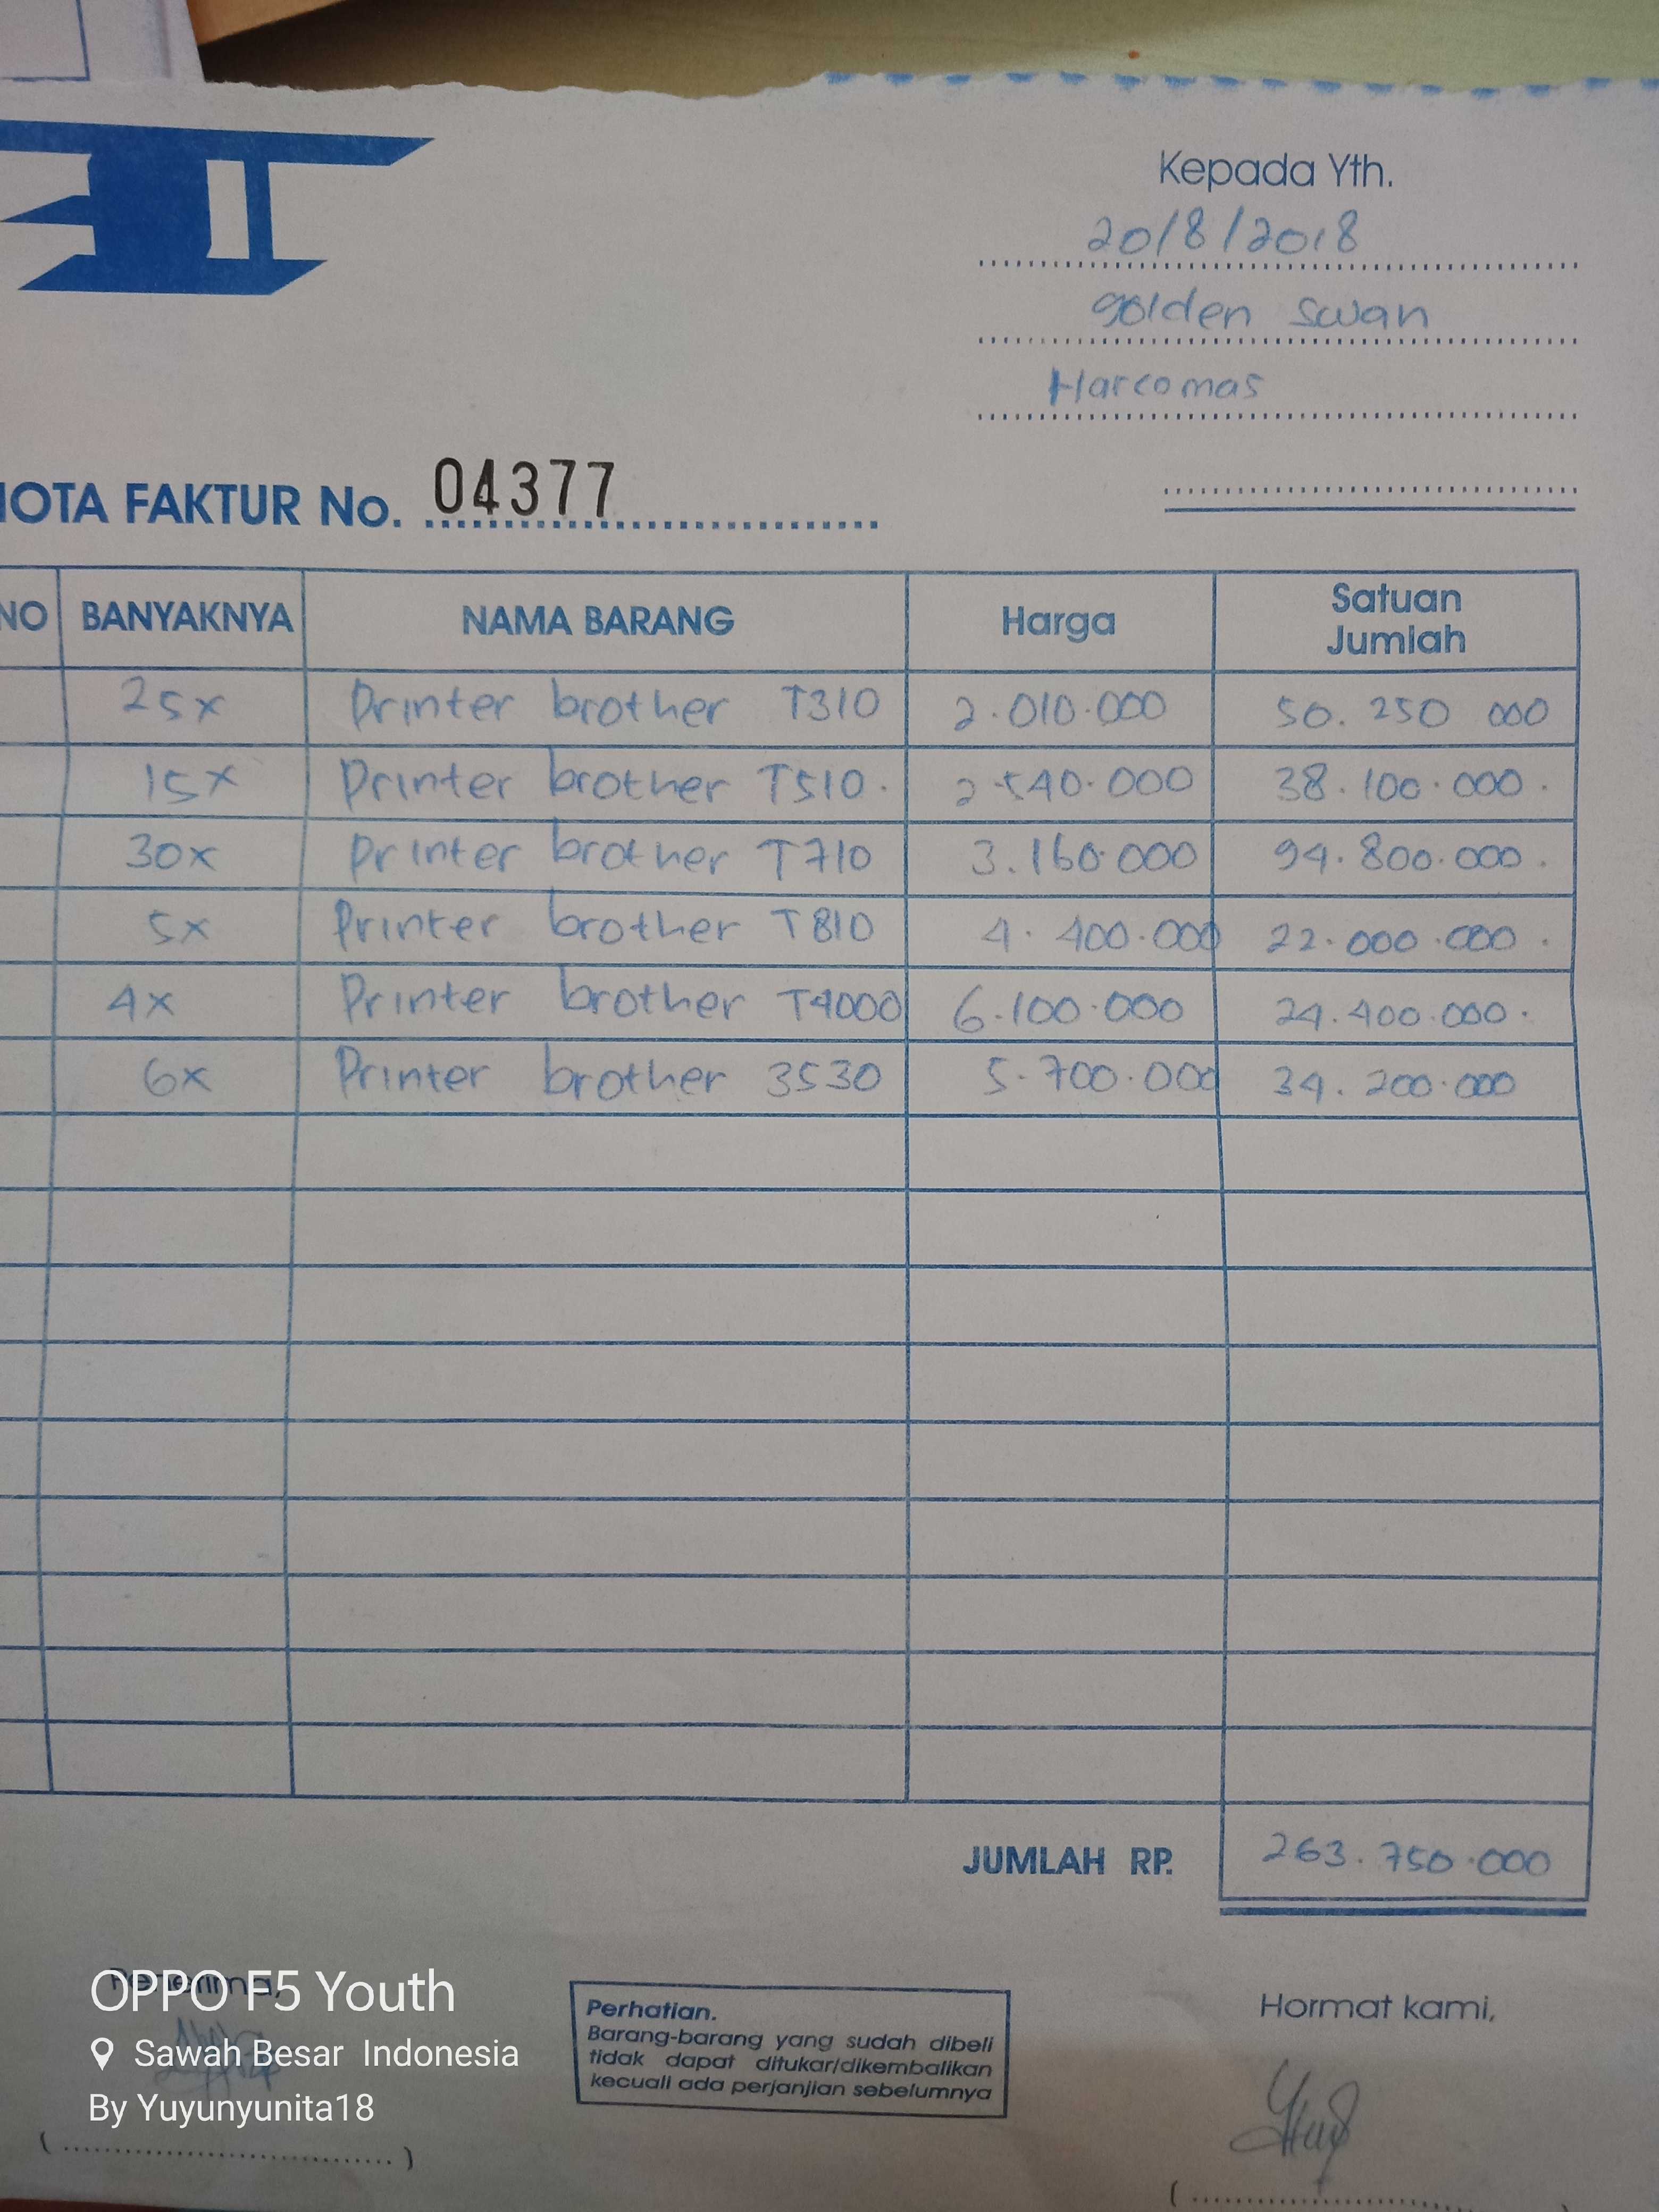 Kepada Yth.
20/8/2018
golden swan
Harcomas
IOTA FAKTUR No. 04377
NO BANYAKNYA NAMA BARANG Harga Satuan Jumlah
25x Printer brother T310 2.010.000 50.250 000
15x Printer brother T510. 2.540.000 38.100.000.
30x Printer brother T710 3.160.000 94.800.000.
5x Printer brother T810 4.400.000 22.000.000.
4x Printer brother T4000 6.100.000 24.400.000.
6x Printer brother 3530 5.700.000 34.200.000
JUMLAH RP. 263.750.000
Penerima,
Perhatian.
Barang-barang yang sudah dibeli
tidak dapat ditukar/dikembalikan
kecuali ada perjanjian sebelumnya
Hormat kami,
OPPO F5 Youth
Sawah Besar Indonesia
By Yuyunyunita18